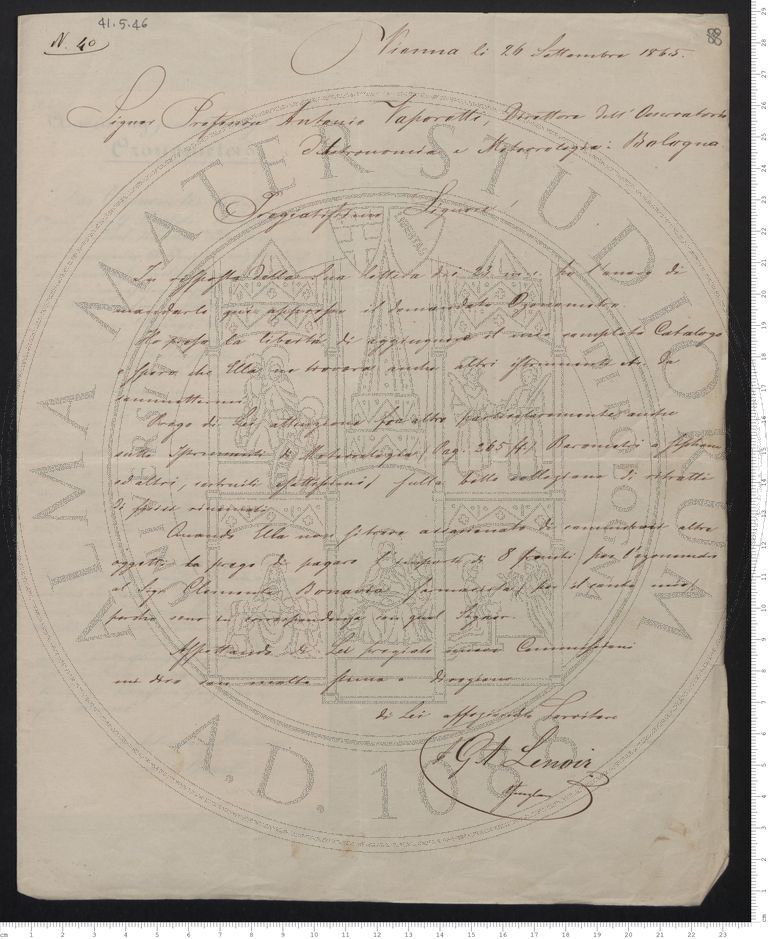 41.5.46
N. 40
Vienna li 26 Settembre 1865.
Signor Professor Antonio Saporetti, Direttore dell'Osservatorio
d'Astronomia e Meteorologia: Bologna
Pregiatissimo Signore!
In risposta della Sua lettera dei 23 m. c. ho l'onore di
mandarle qui appresso il domandato Ozonometro.
Ho preso la libertà di aggiugnere il mio completo Catalogo
e spero che Ella ne troverà anche altri istrumenti etc. da
Prego di Lei attenzione fra altro particolarmente anche
sulle Istrumenti di Meteorologia (Pag. 265 ff.) Barometri a
ed altri, sulla bella collezione di ritratti
di fisici rinomati.
Quando Ella non si trova di commissioni altre
oggetti La prego di pagare l'importo di 8 franchi per l'ozonometro
al Sig. Clemente Bonavia farmacista per il conto mio
perché sono in corrispondenza con quel Signor.
Aspettando di Lei pregiate nuove Commissioni
mi dico con molta stima e divozione
di Lei affezionato Servitore
G A Lenoir
ALMA MATER STUDIORUM
A.D. 1088